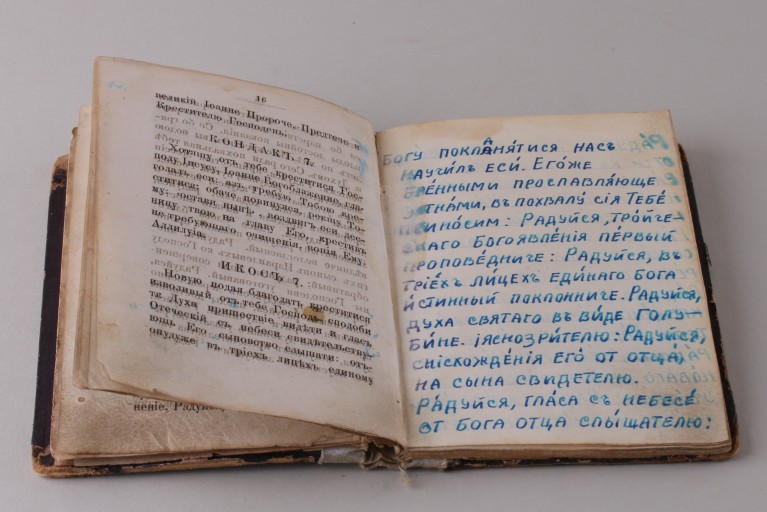 16
великій Іоанне Пророче, Предтече и
Крестителю Господень.
КОНДАКЪ 7.
Хотящу отъ тебе креститися Гос-
поду Іисусу, Іоанне Богоблаженне, гла-
голалъ еси: азъ требую Тобою кре-
ститися; обаче повинувся, рекшу То-
му: остави нынѣ, воздвиглъ еси дес-
ницу твою на главу Его, крестивъ
не требующаго очищенія, вопія Ему:
Аллилуіа.
ИКОСЪ 7.
Новую подая благодать, креститися
изволивый отъ тебе Господь, сподоби
тя Духа пришествіе видѣти и гласъ
Отеческій съ небеси свидѣтельству-
ющъ Его сыновство слышати: от-
онудуже въ тріехъ лицѣхъ единому
неніе. Раду
БОГУ ПОКЛАНЯТИСЯ НАСЪ
НАУЧИЛЪ ЕСИ. ЕГОЖЕ
БРЕННЫМИ ПРОСЛАВЛЯЮЩЕ
УСТНАМИ, ВЪ ПОХВАЛУ СІЯ ТЕБЕ
ПРИНОСИМ: РАДУЙСЯ, ТРОЙЧЕ-
СКАГО БОГОЯВЛЕНІЯ ПЕРВЫЙ
ПРОПОВЕДНИЧЕ: РАДУЙСЯ, ВЪ
ТРІЕХЪ ЛИЦЕХЪ ЕДИНАГО БОГА
ИСТИННЫЙ ПОКЛОННИЧЕ. РАДУЙСЯ,
ДУХА СВЯТАГО ВЪ ВИДЕ ГОЛУ-
БИНЕ. ІЯСНОЗРИТЕЛЮ: РАДУЙСЯ,
СНІСХОЖДЕНІЯ ЕГО ОТ ОТЦА,
НА СЫНА СВИДЕТЕЛЮ.
РАДУЙСЯ, ГЛАСА СЪ НЕБЕСЕ
ОТ БОГА ОТЦА СЛЫЩАТЕЛЮ: